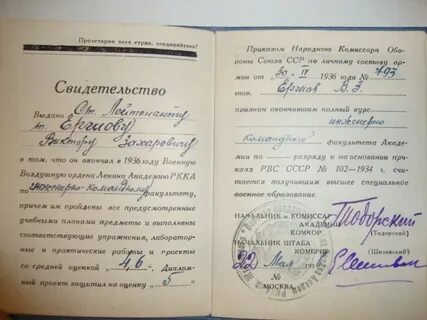 Пролетарии всех стран, соединяйтесь!
Свидетельство
Выдано Ст. Лейтенанту
т. Ергиову
Виктору Захаровичу
в том, что он окончил в 1936 году Военную
Воздушную ордена Ленина Академию РККА
по инженерно-командному факультету,
причем им пройдены все предусмотренные
учебными планами предметы и выполнены
соответствующие упражнения, лабораторные
и практические работы и проекты
со средней оценкой 4,6 Дипломный
проект защитил на оценку 5
Приказом Народного Комиссара Обороны
Союза ССР по личному составу
армии от 30 1936 года № 793
тов. Ергиов В.З.
признан окончившим полный курс
инженерно
Командного факультета Академии
по — разряду и на основании приказа
РВС СССР № 102—1934 г.
считается получившим высшее специальное
военное образование.
НАЧАЛЬНИК и КОМИССАР
АКАДЕМИИ
Тодорский
(Тодорский)
НАЧАЛЬНИК ШТАБА
КОМБРИГ
(Шиловский)
22 Мая 193
№
МОСКВА